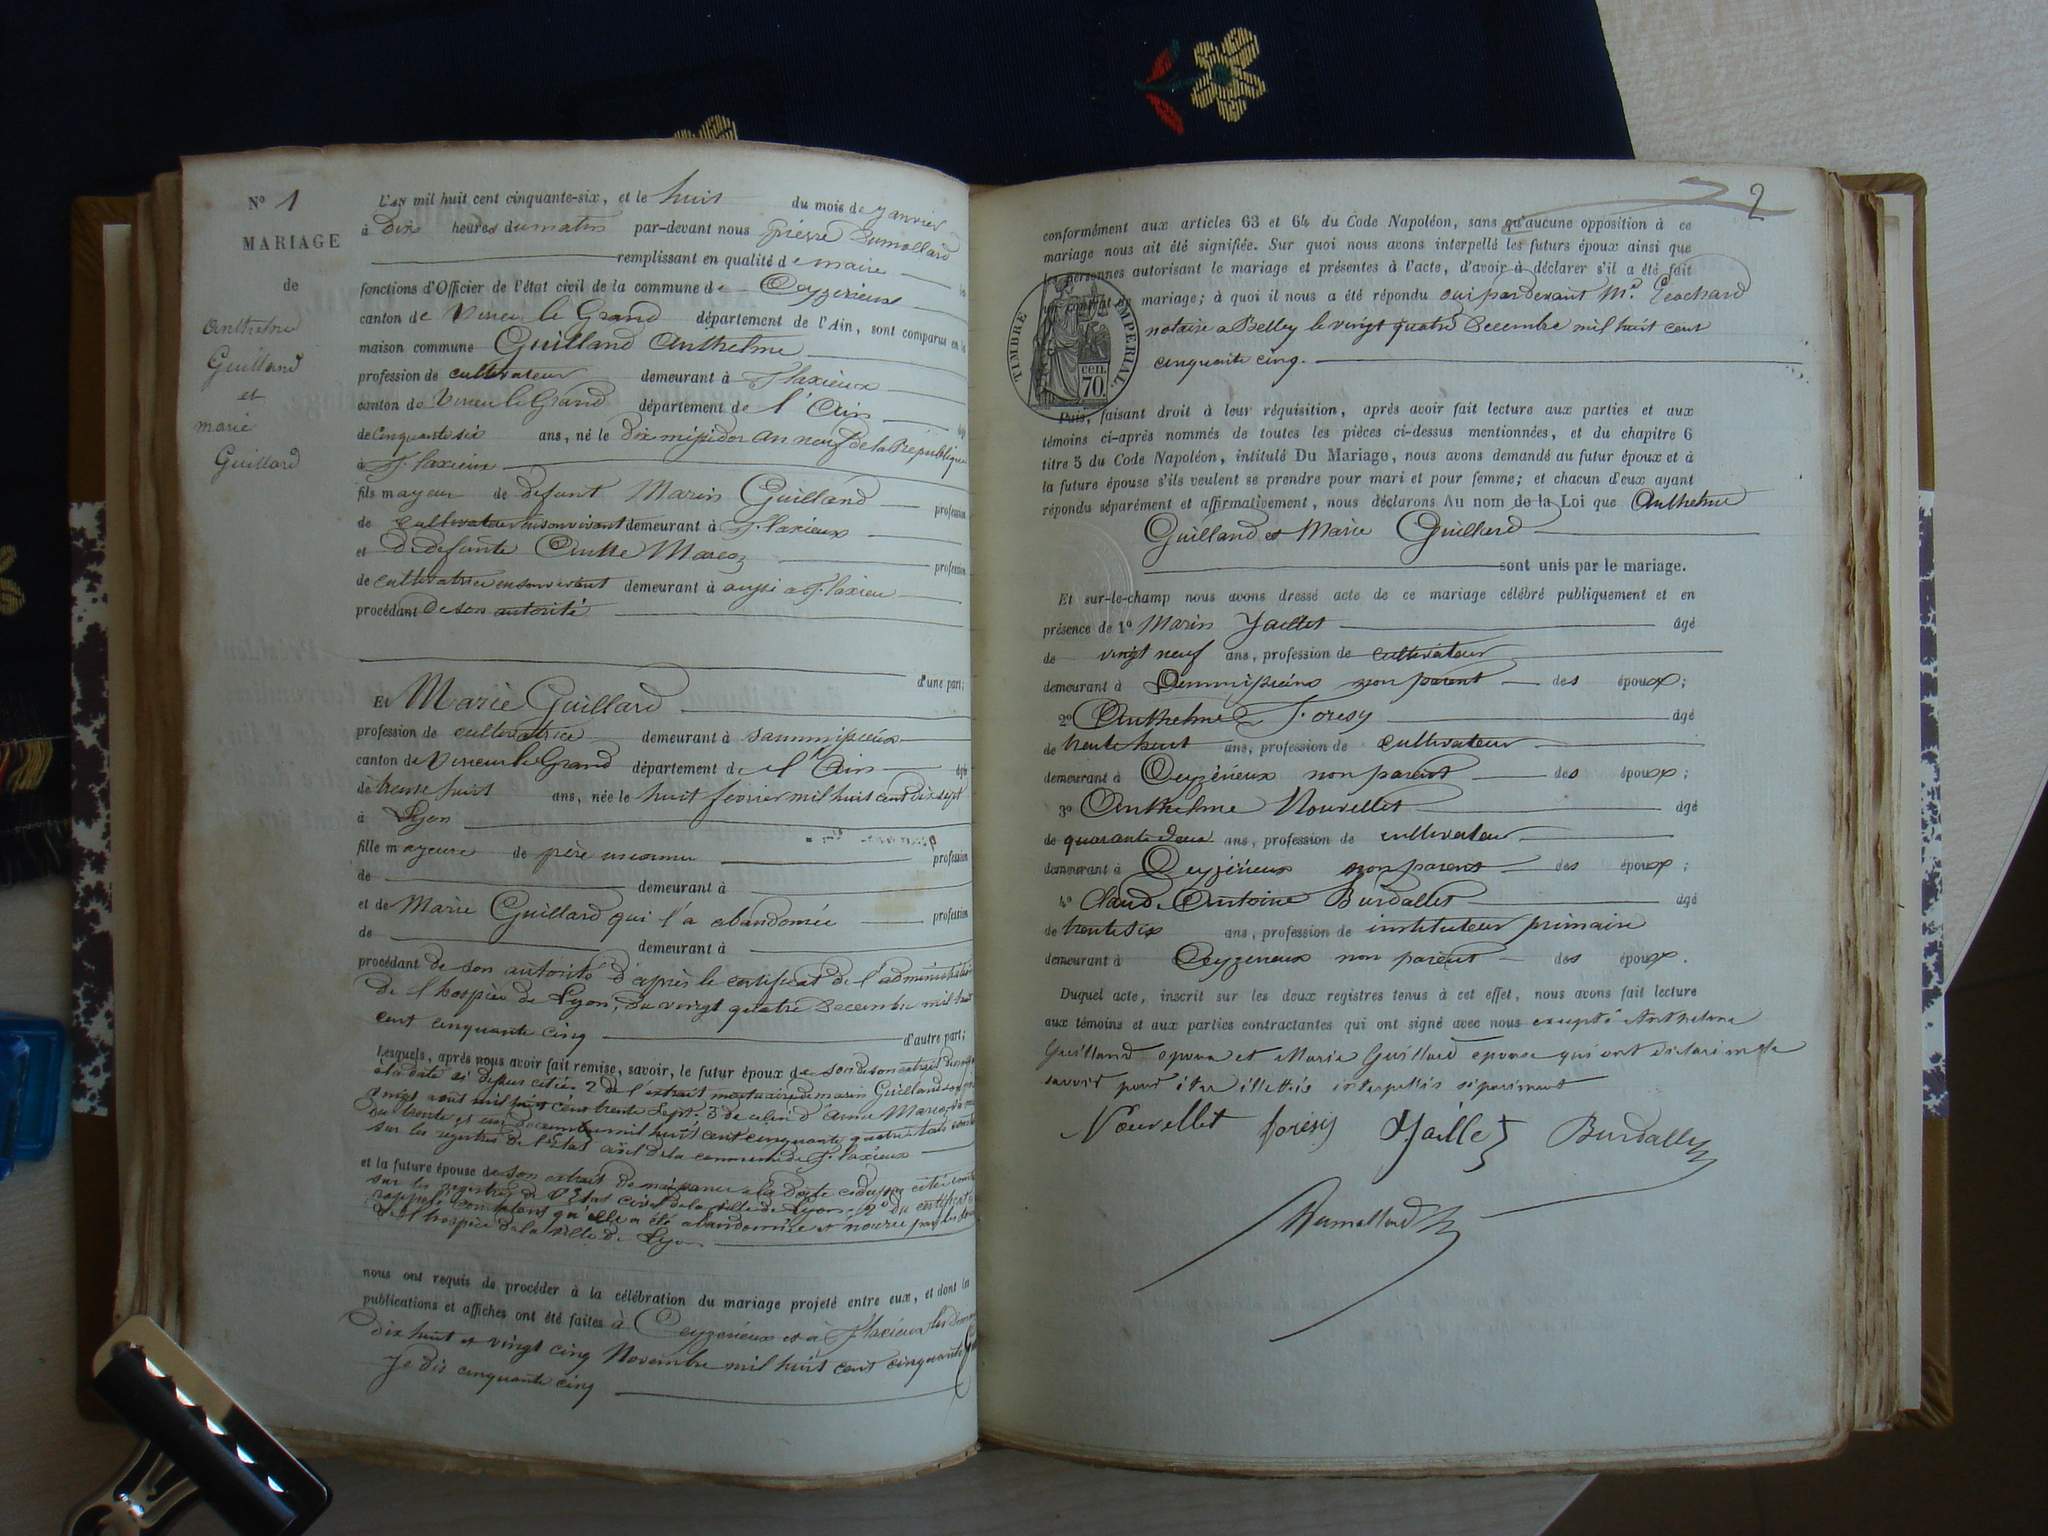 N° 1
MARIAGE
de
Anthelme
Guilland
et
marie
Guillard
L'AN mil huit cent cinquante-six, et le huit du mois de janvier
à Dix heures du matin par-devant nous pierre Dumollard
remplissant en qualité de maire les
fonctions d'Officier de l'état civil de la commune de Ceyzerieux
canton de Virieu le Grand département de l'Ain, sont comparus en la
maison commune Guilland Anthelme
profession de cultivateur demeurant à flaxieux
canton de Virieu le Grand département de l'Ain
de Cinquante six ans, né le Dix an neuf de la République
à flaxieux
fils mayeur de defunt Marin Guilland profession
de cultivateur en son vivant demeurant à flaxieux
et De defunte profession
de cultivatrice en son vivant demeurant à aussi a flaxieu
procédant De son autorité
d'une part;
Et Marie Guillard
profession de cultivatrice demeurant à
canton de Virieu le Grand département de l'Ain
de trente huit ans, née le huit fevrier mil huit cent dix sept
à Lyon
fille mayeure de père inconnu profession
de demeurant à
et de Marie Guillard qui l'a abandonnée profession
de demeurant à
procédant de son autorité d'après le certificat de l'administration
De l'hospice de Lyon, du vingt quatre Decembre mil huit
cent cinquante cinq d'autre part;
Lesquels, après nous avoir fait remise, savoir, le futur époux de son extrait
à la date ci dessus citée 2 de l'extrait mortuaire de marin Guilland
mil huit cent trente sept. 3 de celui d'
du trente et un decembre mil huit cent cinquante quatre
sur les registres de l'Etat civil de la commune de flaxieux
et la future épouse de son extrait de naissance a la Date ci dessus citée
sur les registres de l'Etat civil de la ville de Lyon. 2° du certificat
rappelé qu'elle a été abandonnée et nourrie par les
de l'hospice de la ville de Lyon
nous ont requis de procéder à la célébration du mariage projeté entre eux, et dont les
publications et affiches ont été faites à Ceyzerieux et à flaxieux les
dix huit et vingt cinq Novembre mil huit cent cinquante
je dis cinquante cinq
2
conformément aux articles 63 et 64 du Code Napoléon, sans qu'aucune opposition à ce
mariage nous ait été signifiée. Sur quoi nous avons interpellé les futurs époux ainsi que
les personnes autorisant le mariage et présentes à l'acte, d'avoir à déclarer s'il a été fait
un contrat de mariage; à quoi il nous a été répondu oui par devant Me
notaire a Belley le vingt quatre Decembre mil huit cent
cinquante cinq.
TIMBRE IMPERIAL
CEN. 70.
Puis, faisant droit à leur réquisition, après avoir fait lecture aux parties et aux
témoins ci-après nommés de toutes les pièces ci-dessus mentionnées, et du chapitre 6
titre 5 du Code Napoléon, intitulé Du Mariage, nous avons demandé au futur époux et à
la future épouse s'ils veulent se prendre pour mari et pour femme; et chacun d'eux ayant
répondu séparément et affirmativement, nous déclarons Au nom de la Loi que Anthelme
Guilland et Marie Guillard
sont unis par le mariage.
Et sur-le-champ nous avons dressé acte de ce mariage célébré publiquement et en
présence de 1° Marin Jaillet âgé
de vingt neuf ans, profession de cultivateur
demeurant à non parent des époux;
2° Anthelme foresy âgé
de trente huit ans, profession de cultivateur
demeurant à Ceyzérieux non parent des époux;
3° Anthelme Nouvellet âgé
de quarante deux ans, profession de cultivateur
demeurant à Ceyzérieux non parent des époux;
4° Claude Antoine Burdallet âgé
de trente six ans, profession de instituteur primaire
demeurant à Ceyzerieux non parent des époux.
Duquel acte, inscrit sur les deux registres tenus à cet effet, nous avons fait lecture
aux témoins et aux parties contractantes qui ont signé avec nous excepté Anthelme
Guilland epoux et Marie Guillard epouse qui ont déclaré ne le
savoir pour être illettrés interpellés séparément
Nouvellet foresy Jaillet Burdallet
Dumollard